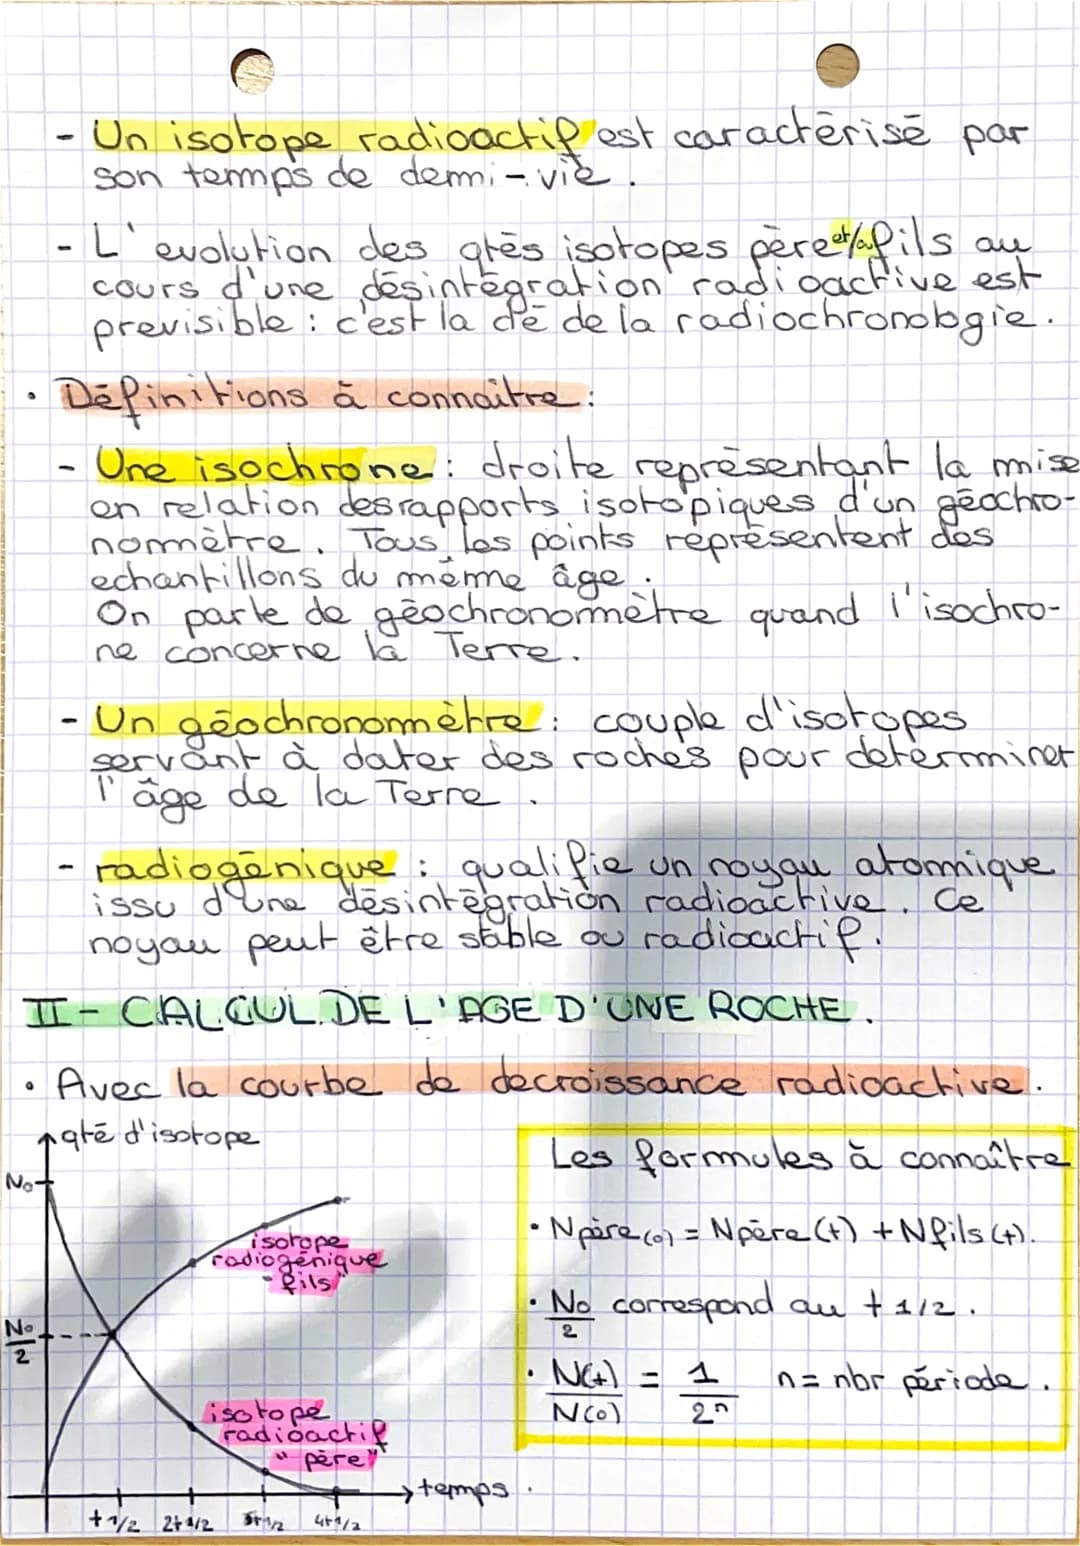 - Un isotope radioactif est caractérisé par
son temps de demi-vie.
- L'evolution des qtés isotopes père et/ou fils au
cours d'une désintégration radioactive est
previsible : c'est la clé de la radiochronologie.
• Définitions à connaitre :
- Une isochrone : droite représentant la mise
en relation des rapports isotopiques d'un géochro-
nomètre. Tous les points représentent des
echantillons du même âge.
On parle de géochronomètre quand l'isochro-
ne concerne la Terre.
- Un géochronomètre : couple d'isotopes
servant à dater des roches pour determiner
l'âge de la Terre.
- radiogénique : qualifie un noyau atomique
issu d'une désintégration radioactive. Ce
noyau peut être stable ou radioactif.
II - CALCUL DE L'AGE D'UNE ROCHE.
• Avec la courbe de decroissance radioactive.
qté d'isotope
N0
N0/2
isotope
radiogénique
"fils"
isotope
radioactif
"père"
temps
t1/2 2t1/2 3t1/2 4t1/2
Les formules à connaître
• Npère(0) = Npère(t) + Nfils(t).
• N0/2 correspond au t 1/2.
• N(t)/N(0) = 1/2^n n = nbr période.